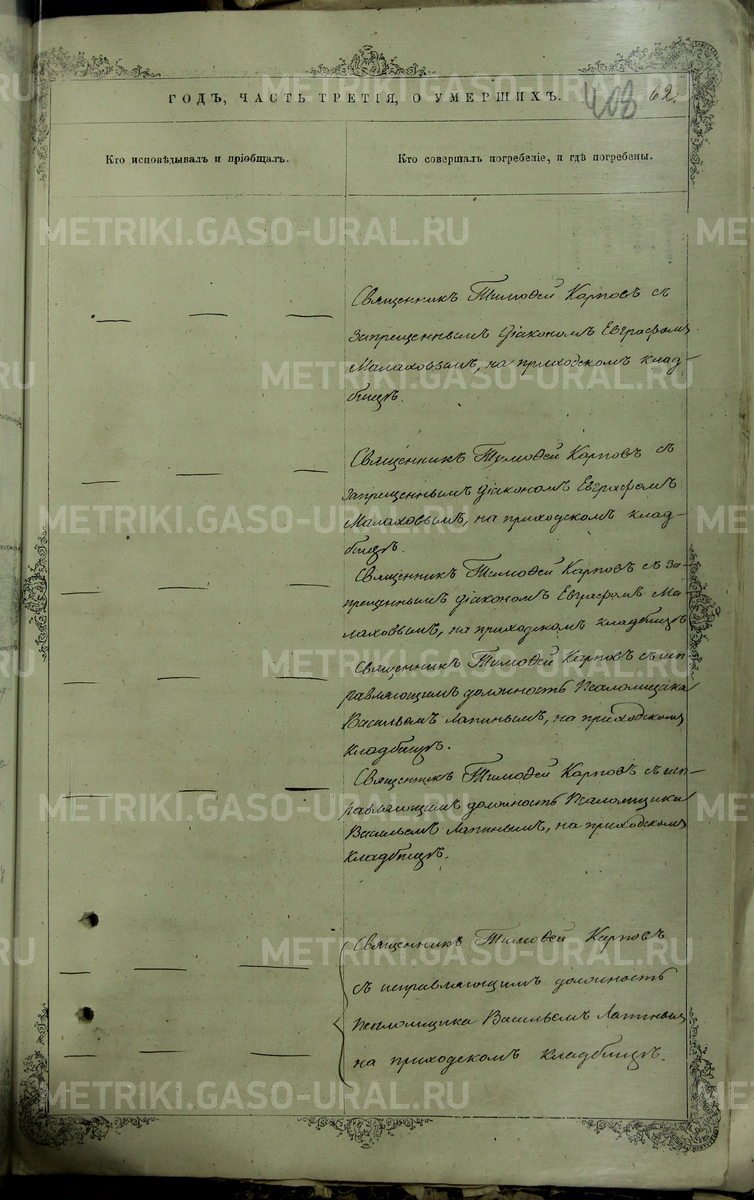 ГОДЪ, ЧАСТЬ ТРЕТІЯ, О УМЕРШИХЪ.
408
62.
Кто исповѣдывалъ и пріобщалъ.
Кто совершалъ погребеніе, и гдѣ погребены.
Священникъ Тимоѳей Карповъ съ
запрещеннымъ діакономъ Евграфомъ
Малаховымъ, на приходскомъ клад-
бищѣ.
Священникъ Тимоѳей Карповъ съ
запрещеннымъ діакономъ Евграфомъ
Малаховымъ, на приходскомъ клад-
бищѣ.
Священникъ Тимоѳей Карповъ съ за-
прещеннымъ діакономъ Евграфомъ Ма-
лаховымъ, на приходскомъ кладбищѣ
Священникъ Тимоѳей Карповъ съ исп-
равляющимъ должность Псаломщика
Васильемъ Лапинымъ, на приходскомъ
кладбищѣ.
Священникъ Тимоѳей Карповъ съ исп-
равляющимъ должность Псаломщика
Васильемъ Лапинымъ, на приходскомъ
кладбищѣ.
Священникъ Тимоѳей Карповъ
съ исправляющимъ должность
Псаломщика Васильемъ Лапинымъ
на приходскомъ кладбищѣ.
METRIKI.GASO-URAL.RU